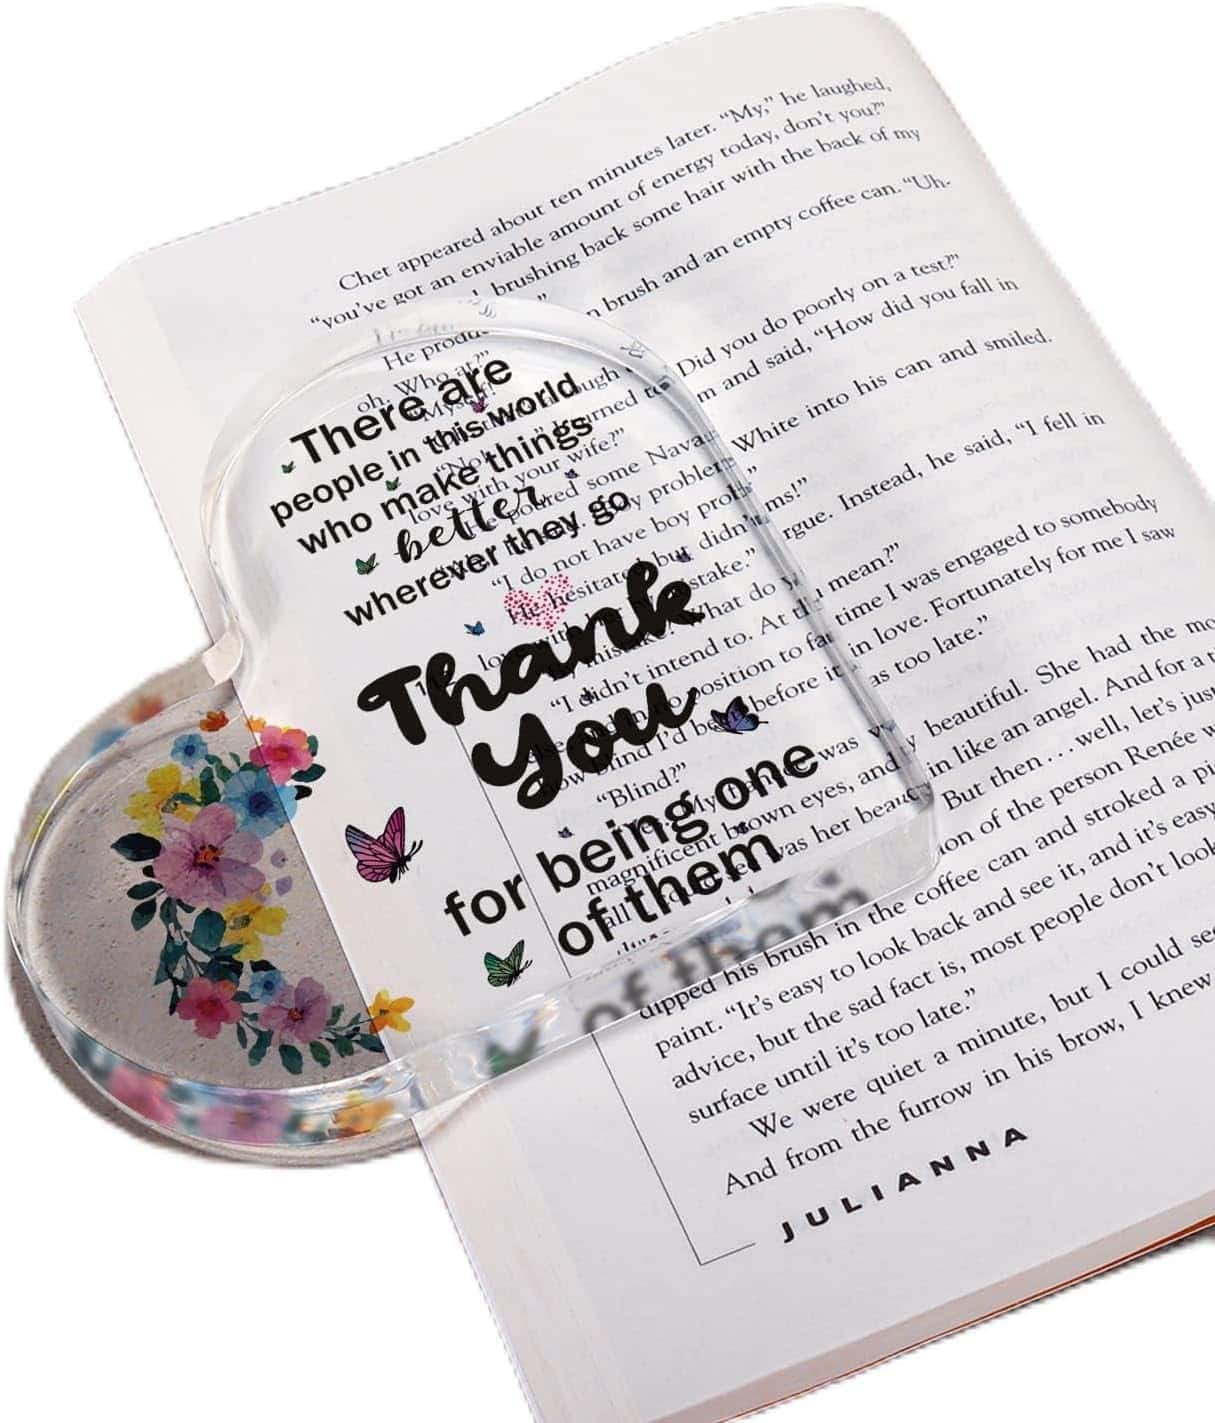 Chet appeared about ten minutes later. “My,” he laughed,
“you’ve got an enviable amount of energy today, don’t you?”
brushing back some hair with the back of my
He produ
n brush and an empty coffee can. “Uh-
oh.
Who at?”
Did you do poorly on a test?”
m and said, “How did you fall in
love with your wife?”
He poured some Nava
White into his can and smiled.
“I do not have boy prob
rgue. Instead, he said, “I fell in
He hesitated
but didn’t
mean?”
What do
“I didn’t intend to. At th
time I was engaged to somebody
position to fa
in love. Fortunately for me I saw
before it
as too late.”
“Blind?”
was
y beautiful. She had the mo
magnificent brown eyes, and
in like an angel. And for a t
all
was her beau
But then . . . well, let’s jus
ion of the person Renée w
dipped his brush in the coffee can and stroked a pi
paint. “It’s easy to look back and see it, and it’s easy
advice, but the sad fact is, most people don’t look
surface until it’s too late.”
We were quiet a minute, but I could se
And from the furrow in his brow, I knew
JULIANNA
There are
people in this world
who make things
better
wherever they go
Thank
You
for being one
of them